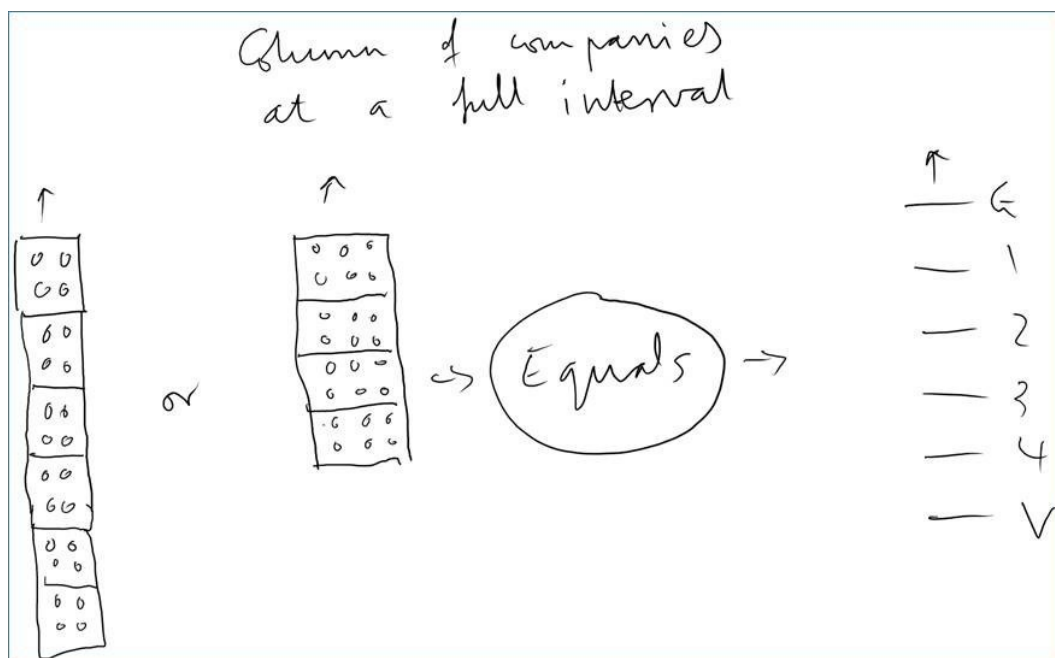 Column of companies
at a full interval
or
Equals
G
1
2
3
4
V